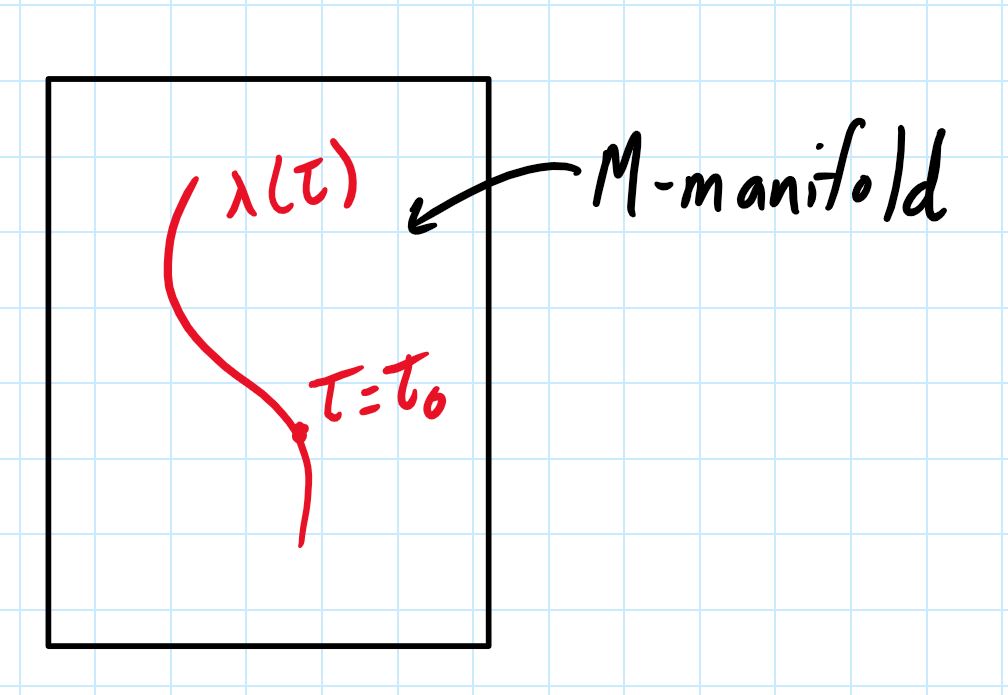 λ(τ)
M-manifold
τ=τ₀